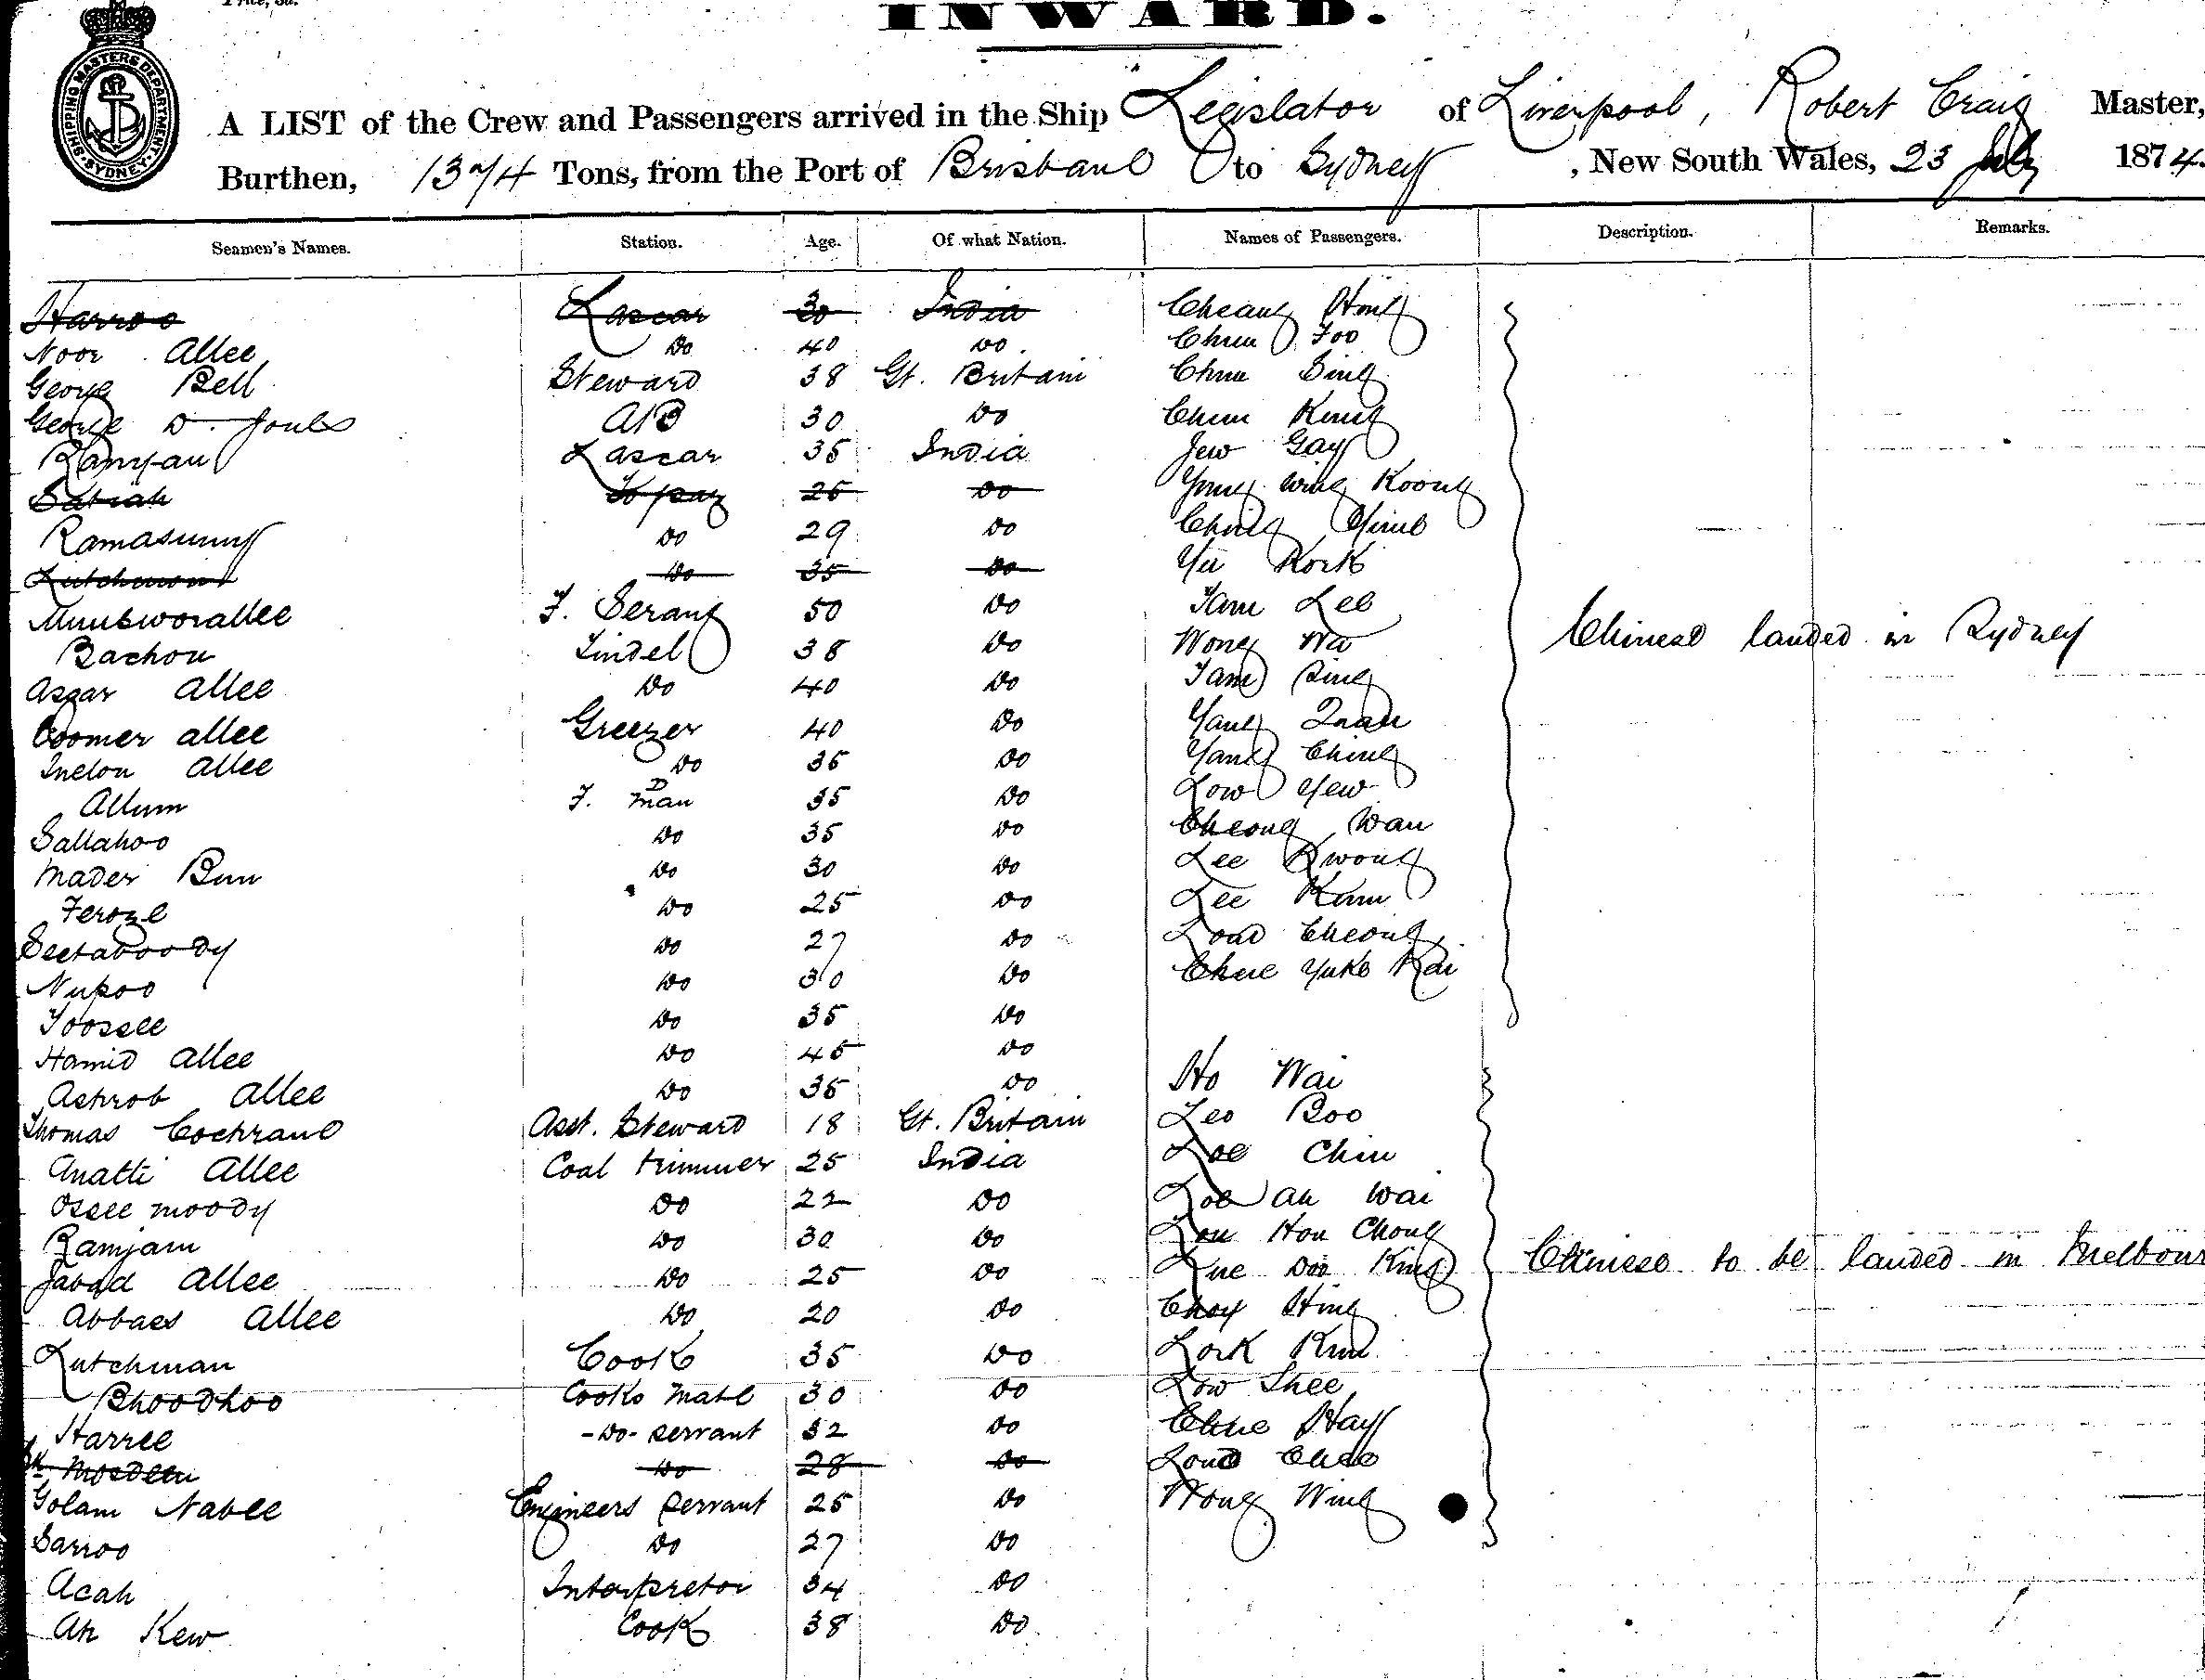 INWARD.
SHIPPING MASTERS DEPARTMENT SYDNEY
A LIST of the Crew and Passengers arrived in the Ship Legislator of Liverpool, Robert Craig Master,
Burthen, 1374 Tons, from the Port of Brisbane to Sydney, New South Wales, 23 July 1874.
Seamen's Names. Station. Age. Of what Nation. Names of Passengers. Description. Remarks.
Harroo Lascar 30 India Cheang Hong
Noor Allee Do 40 Do. Chun Foo
George Bell Steward 38 Gt. Britain Chun Sing
George D. Joules AB 30 Do Chun Kung
Ramjan Lascar 35 India Jew Gay
Topaz 25 Do Yong Wing Koong
Ramasumy Do 29 Do Ching
Lutchmon Do 35 Do Yii Kork
F. Serang 50 Do Tam Lee
Bachou Tindel 38 Do Wong Wa Chinese landed in Sydney
Asgar Allee Do 40 Do Tam Sing
Coomer allee Greezer 40 Do Yang
Inelou Allee Do 35 Do Yang Ching
Allum F. Man 35 Do Low Yew
Sallahoo Do 35 Do Cheong Wau
Mader Do 30 Do Lee Kwong
Feroze Do 25 Do Lee Kum
Seetaboody Do 27 Do Loud Cheong
Nupoo Do 30 Do Chue Yuke Kai
Toossee Do 35 Do
Hamid Allee Do 45 Do
Ashrob Allee Do 35 Do Ho Wai
Thomas Cochrane Asst. Steward 18 Gt. Britain Leo Boo
Anatti Allee Coal trimmer 25 India Loe Chin
Ossee moody Do 22 Do Loe au Wai
Ramjam Do 30 Do Lou Hou Chong
Javad Allee Do 25 Do Lue Doo King Chinese to be landed in Melbour
Abbaes Allee Do 20 Do Choy Hing
Lutchman Cook 35 Do Lork Kum
Bhoodhoo Cooks Mate 30 Do Low Shee
Harree -Do- servant 32 Do Chue Hay
Mosdeen Do 28 Do Loud
Golam Nabee Engineers servant 25 Do Hong Wing
Sarroo Do 27 Do
Acah Interpretor 34 Do
Ah Kew Cook 38 Do.